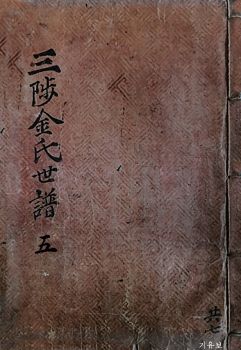 三陟金氏世譜 五
共七
기유보